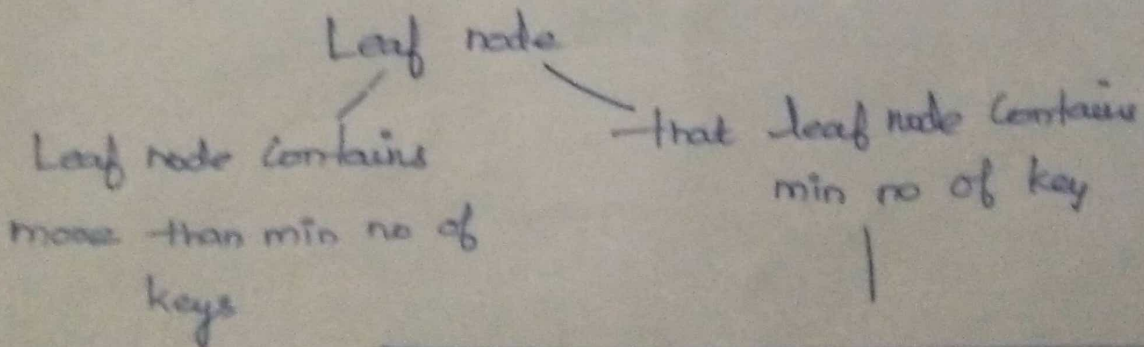 Leaf node
Leaf node contains
more than min no of
keys
that leaf node contains
min no of key